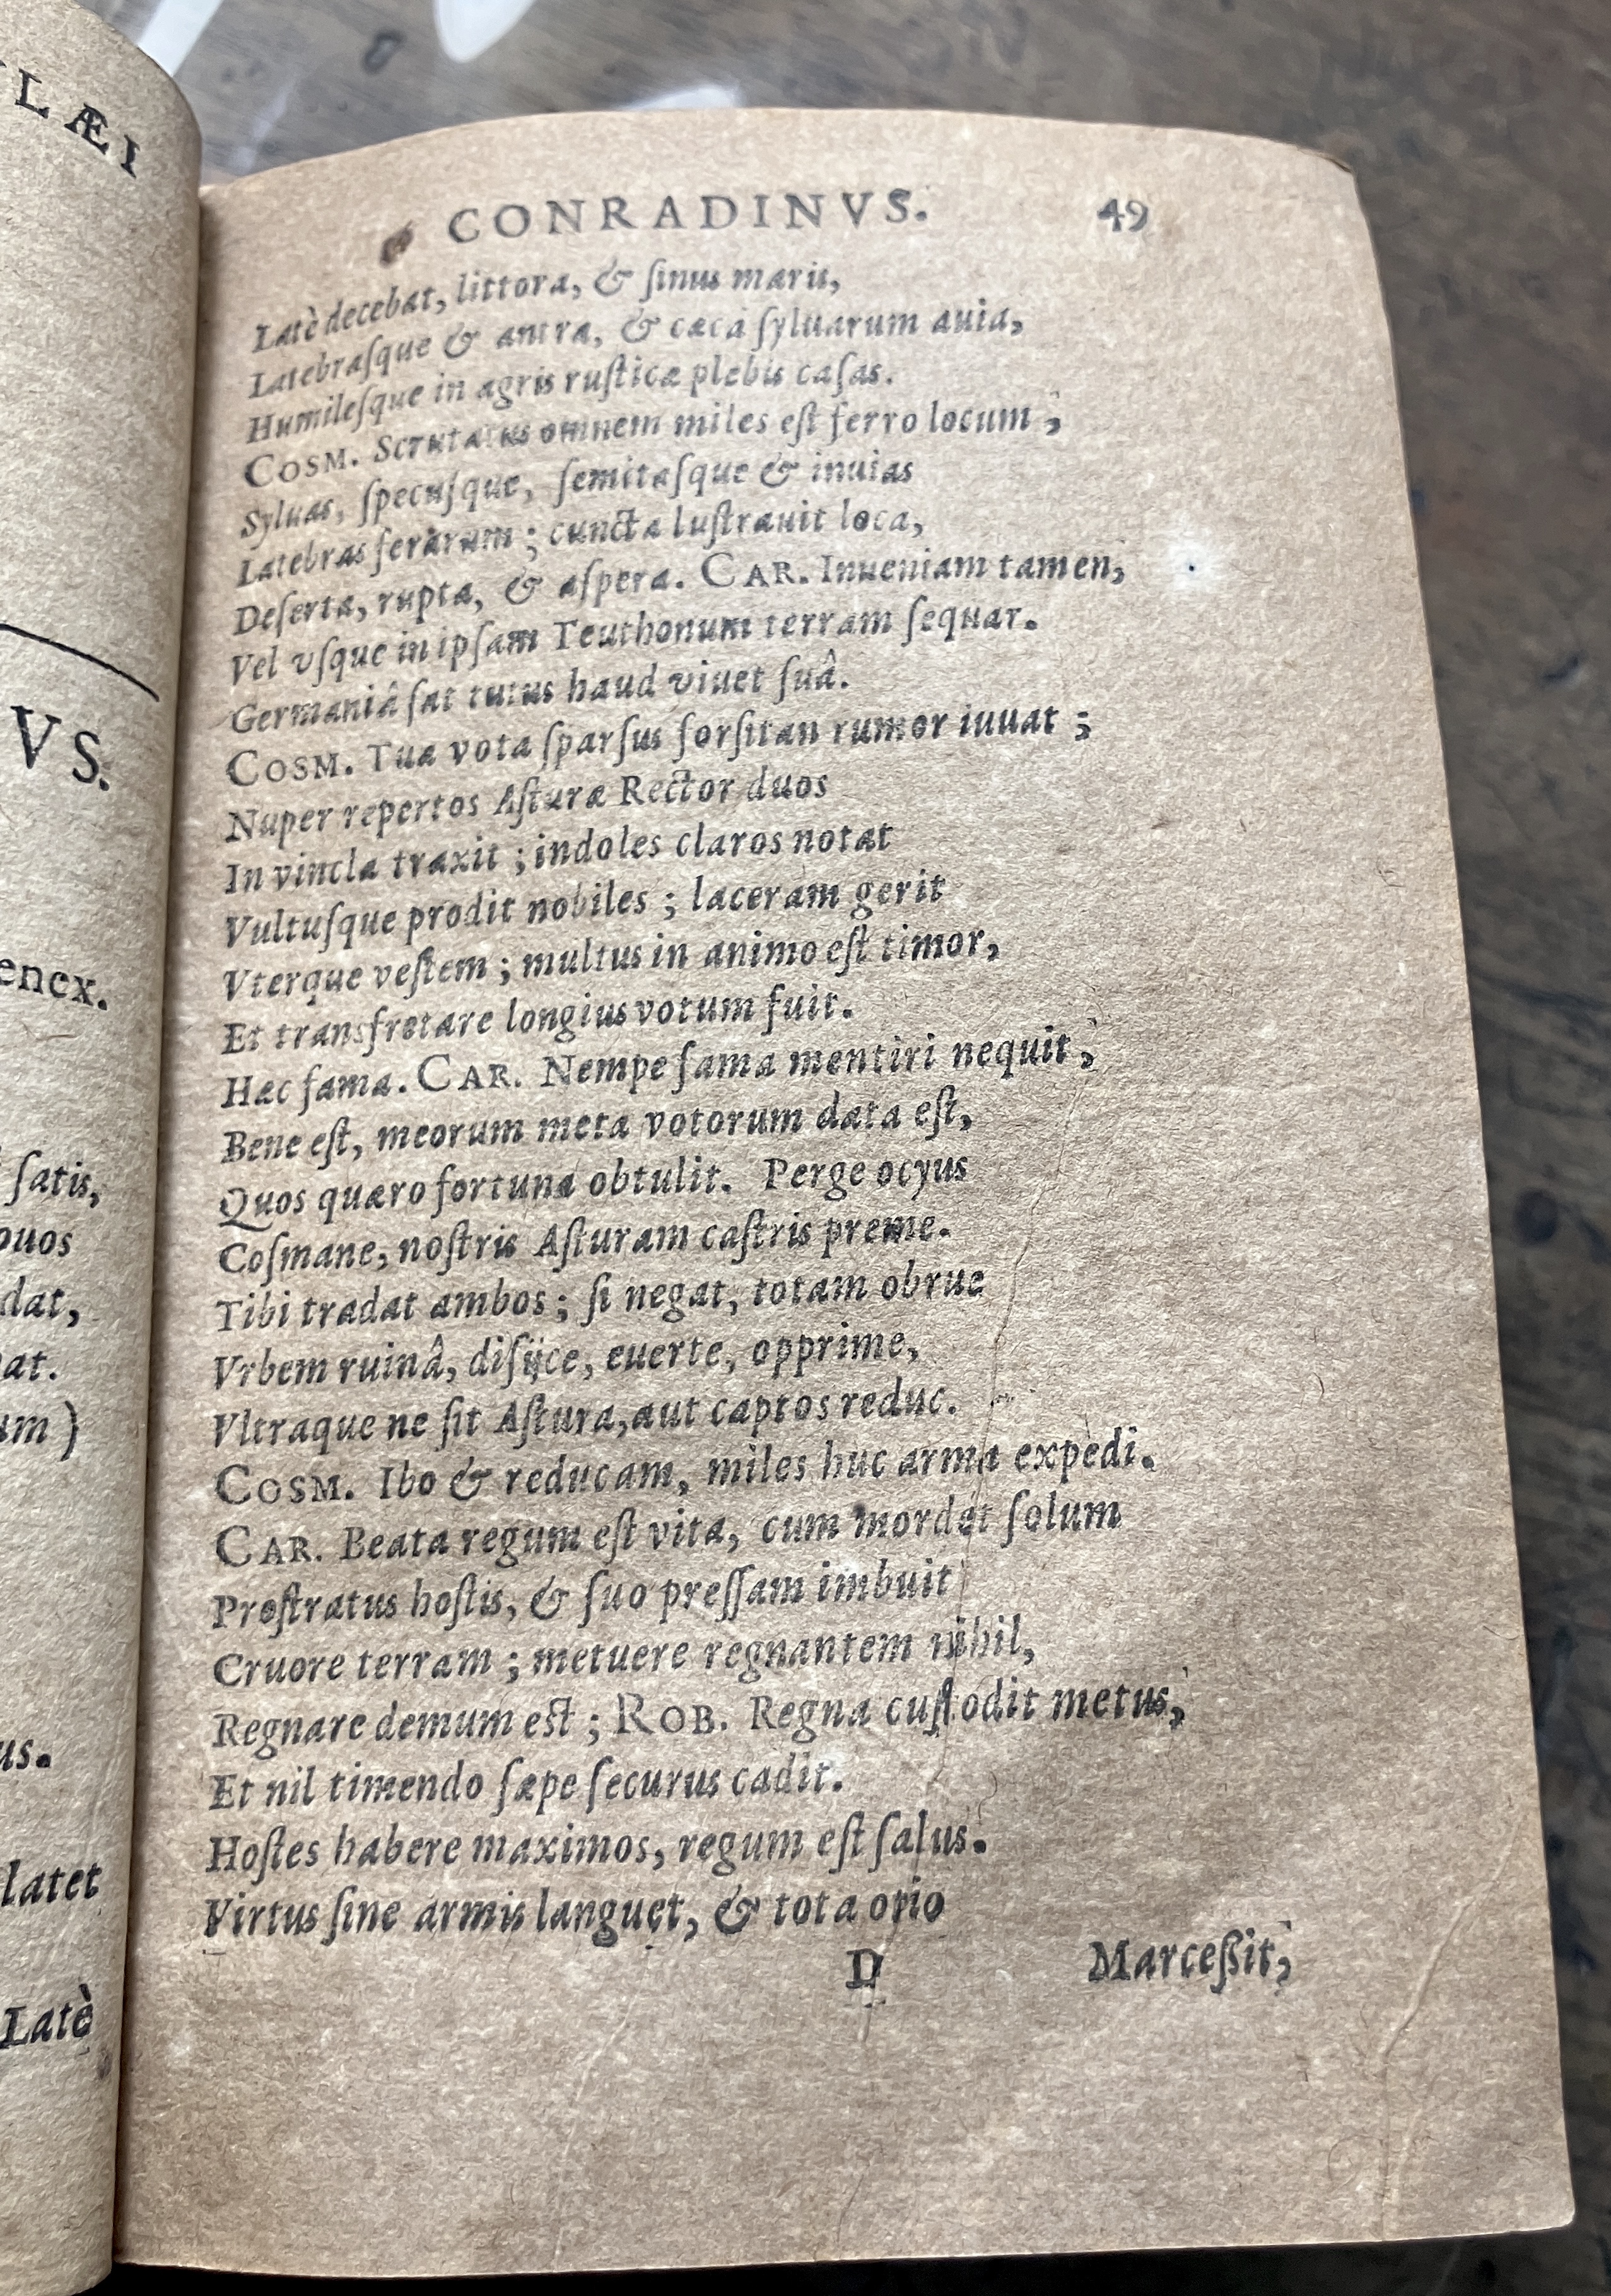 LÆI
VS.
enex.
satis,
ouos
dat,
at.
um)
us.
latet
Latè
CONRADINVS. 49
Latè decebat, littora, & ſinus maris,
Latebraſque & antra, & cæca ſyluarum auia,
Humileſque in agris ruſticæ plebis caſas.
COSM. Scrutatus omnem miles eſt ferro locum;
Syluas, ſpecuſque, ſemitaſque & inuias
Latebras ferarum; cuncta luſtrauit loca,
Deſerta, rupta, & aſpera. CAR. Inueniam tamen,
Vel vſque in ipſam Teuthonum terram ſequar.
Germaniâ ſat tutus haud viuet ſuâ.
COSM. Tua vota ſparſus forſitan rumor iuuat;
Nuper repertos Aſturæ Rector duos
In vincla traxit; indoles claros notat
Vultuſque prodit nobiles; laceram gerit
Vterque veſtem; multus in animo eſt timor,
Et transfretare longius votum fuit.
Hæc fama. CAR. Nempe fama mentiri nequit,
Bene eſt, meorum meta votorum data eſt,
Quos quæro fortuna obtulit. Perge ocyus
Coſmane, noſtris Aſturam caſtris preme.
Tibi tradat ambos; ſi negat, totam obrue
Vrbem ruinâ, diſijce, euerte, opprime,
Vltraque ne ſit Aſtura, aut captos reduc.
COSM. Ibo & reducam, miles huc arma expedi.
CAR. Beata regum eſt vita, cum mordet ſolum
Proſtratus hoſtis, & ſuo preſſam imbuit
Cruore terram; metuere regnantem nihil,
Regnare demum eſt; ROB. Regna cuſtodit metus,
Et nil timendo ſæpe ſecurus cadit.
Hoſtes habere maximos, regum eſt ſalus.
Virtus ſine armis languet, & tota otio
D Marceßit,